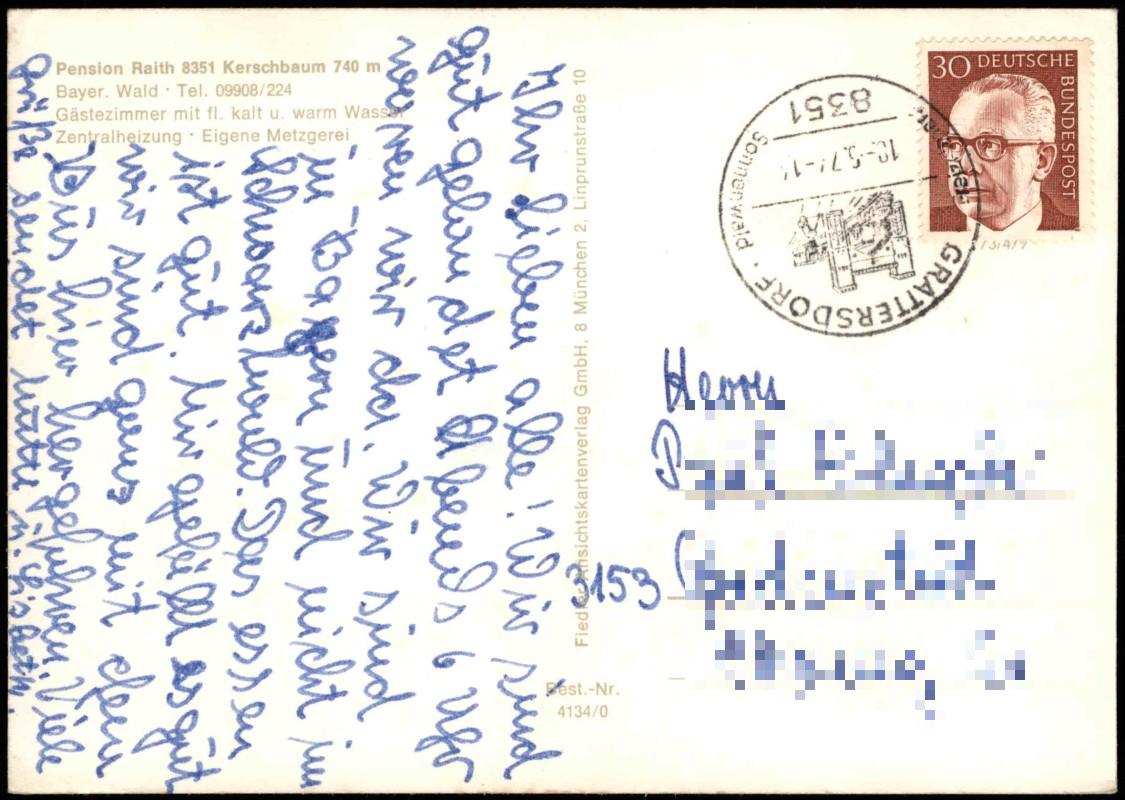 Pension Raith 8351 Kerschbaum 740 m
Bayer. Wald · Tel. 09908/224
Gästezimmer mit fl. kalt u. warm Wasser
Zentralheizung · Eigene Metzgerei
Ihr lieben alle! Wir sind
gut gelandet Abends 6 Uhr
waren wir da. Wir sind
in Bayern und nicht im
Schwarzwald. Das essen
ist gut. hir gefällt es gut
wir sind ganz mit dem
Bus hier hergefahren. Viele
grüße sendet
Fiedler Ansichtskartenverlag GmbH, 8 München 2, Linprunstraße 10
Best.-Nr.
4134/0
30 DEUTSCHE
BUNDESPOST
8351
GRATTERSDORF · Sonnenwald
Herrn
3153